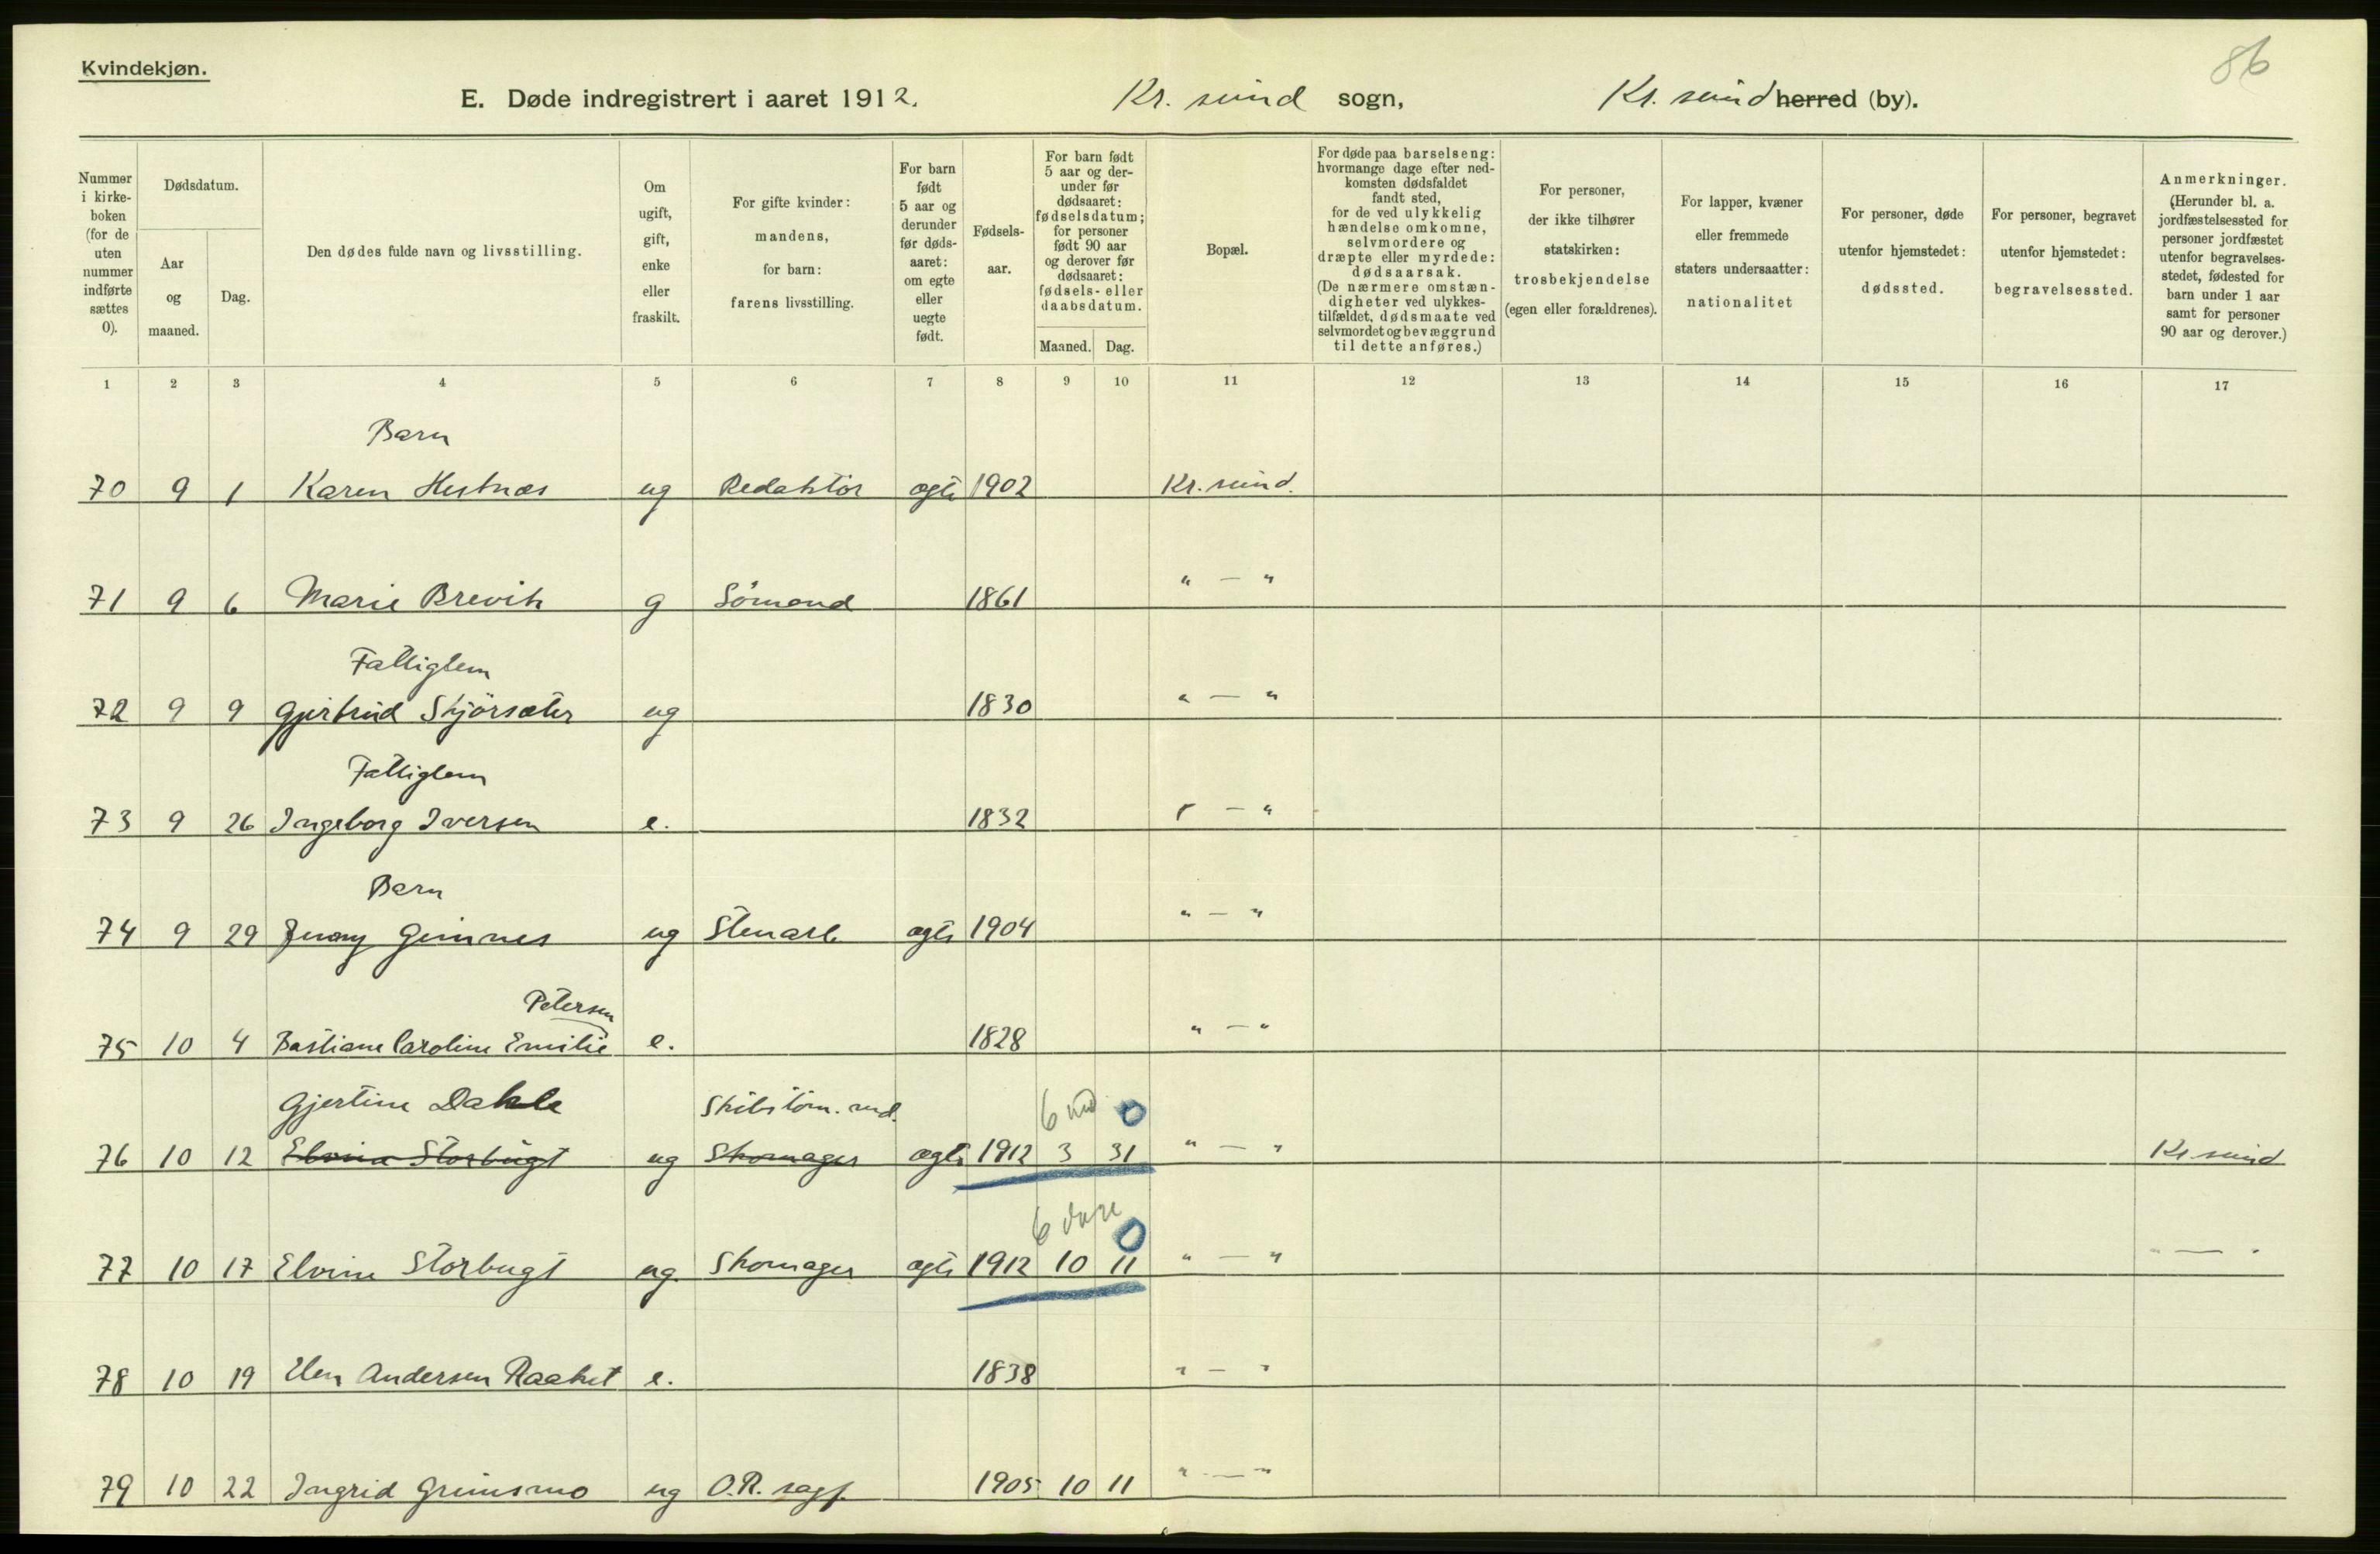 86
Kvindekjøn.
E. Døde indregistrert i aaret 1912. Kr. sund sogn, Kr. sund herred (by).
Nummer i kirke- boken (for de uten nummer indførte sættes 0).
Dødsdatum.
Aar og maaned.
Dag.
Den dødes fulde navn og livsstilling.
Om ugift, gift, enke eller fraskilt.
For gifte kvinder: mandens, for barn: farens livsstilling.
For barn født 5 aar og derunder før døds- aaret: om egte eller uegte født.
Fødsels- aar.
For barn født 5 aar og der- under før dødsaaret: fødselsdatum; for personer født 90 aar og derover før dødsaaret: fødsels- eller daabsdatum.
Maaned. Dag.
Bopæl.
For døde paa barselseng: hvormange dage efter ned- komsten dødsfaldet fandt sted, for de ved ulykkelig hændelse omkomne, selvmordere og dræpte eller myrdede: dødsaarsak. (De nærmere omstæn- digheter ved ulykkes- tilfældet, dødsmaate ved selvmordet og bevæggrund til dette anføres.)
For personer, der ikke tilhører statskirken: trosbekjendelse (egen eller forældrenes).
For lapper, kvæner eller fremmede staters undersaatter: nationalitet
For personer, døde utenfor hjemstedet: dødssted.
For personer, begravet utenfor hjemstedet: begravelsessted.
Anmerkninger. (Herunder bl. a. jordfæstelsessted for personer jordfæstet utenfor begravelses- stedet, fødested for barn under 1 aar samt for personer 90 aar og derover.)
1 2 3 4 5 6 7 8 9 10 11 12 13 14 15 16 17
Barn
70 9 1 Karen Hestnæs ug Redaktör ægte 1902 Kr. sund.
71 9 6 Marie Brevik g Sömand 1861 " — "
Fattiglem
72 9 9 Gjertrud Skjörsæter ug 1830 " — "
Fattiglem
73 9 26 Ingeborg Iversen e. 1832 " — "
Barn
74 9 29 Jenny Gimnes ug Stenarb. ægte 1904 " — "
Petersen
75 10 4 Bastiane Caroline Emilie e. 1828 " — "
Gjertine Dahle Skibstöm. md. 6 md 0
76 10 12 Elvina Storbugt ug Skomager ægte 1912 3 31 " — " Kr sund
6 dage 0
77 10 17 Elvine Storbugt ug. Skomager ægte 1912 10 11 " — " " — "
78 10 19 Elen Andersen Raaket e. 1838 " — "
79 10 22 Ingrid Grimsmo ug O.R. sagf. 1905 10 11 " — "